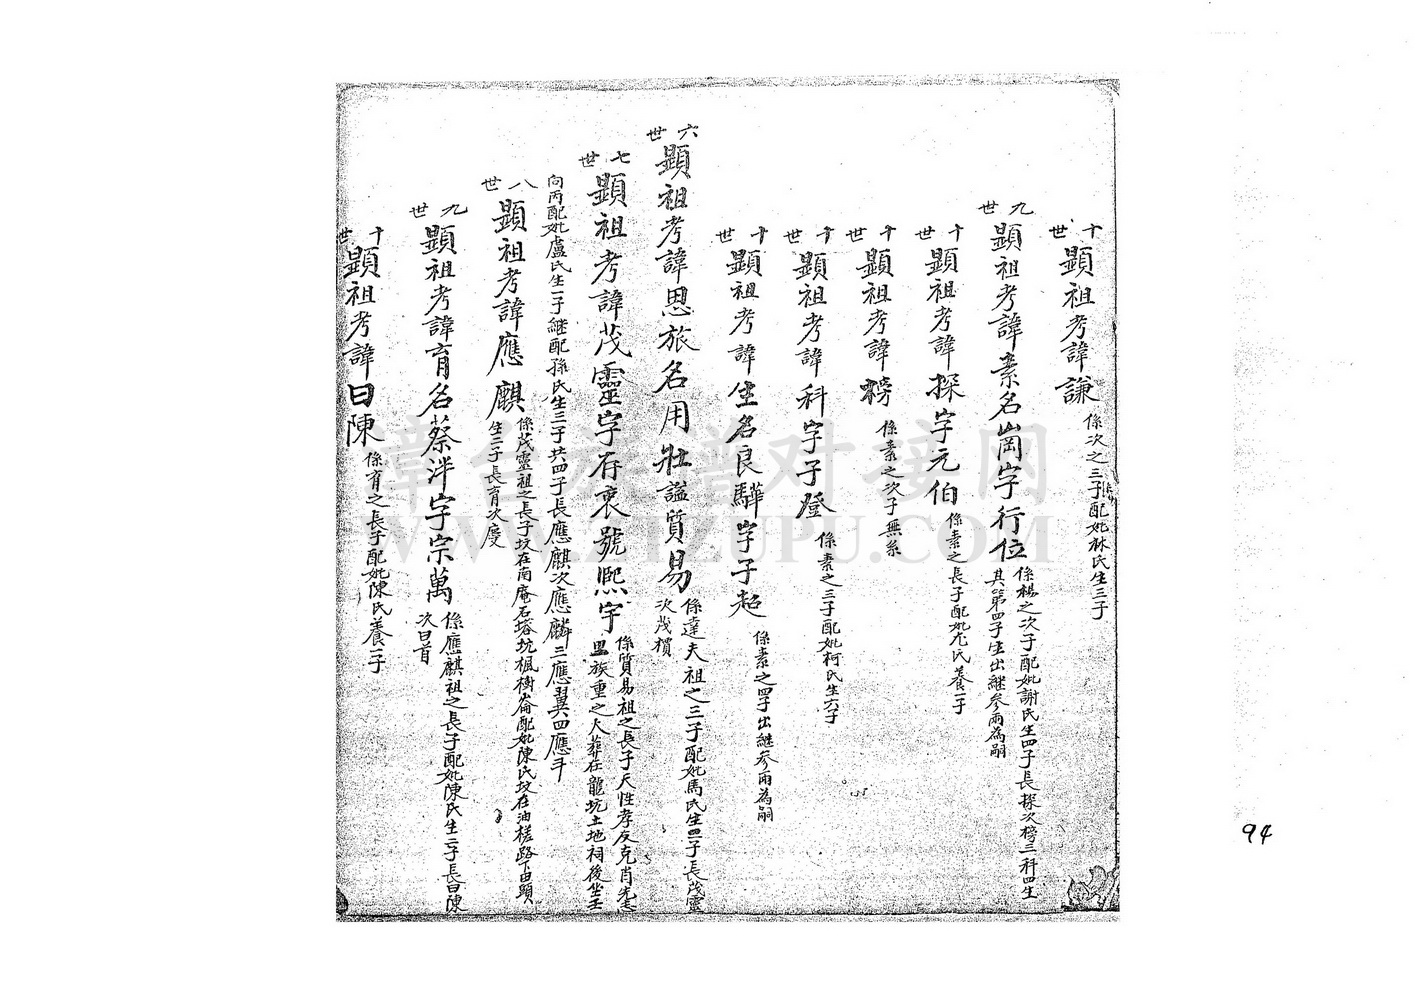 十世
顕祖考諱謙
係次之三子配妣林氏生三子
九世
顕祖考諱素名崗字行位
係楊之次子配妣謝氏生四子長探次榜三科四生
其第四子生出継参兩為嗣
十世
顕祖考諱探字元伯
係素之長子配妣尤氏養一子
十世
顕祖考諱榜
係素之次子無系
十世
顕祖考諱科字子登
係素之三子配妣柯氏生六子
十世
顕祖考諱生名良驊字子起
係素之四子出継参兩為嗣
六世
顕祖考諱思旅名用壯謚質易
係達夫祖之三子配妣馬氏生二子長茂靈
次茂櫕
七世
顕祖考諱茂靈字存衷號熙宇
係質易祖之長子天性孝友克肖先志
里族重之人葬在龍坑土地祠後坐壬
向丙配妣盧氏生一子継配孫氏生三子共四子長應麒次應麟三應翼四應斗
八世
顕祖考諱應麒
係茂靈祖之長子坟在南庵石塔坑楓樹崙配妣陳氏坟在油槎路下由顕
生二子長育次度
九世
顕祖考諱育名蔡泮字宗萬
係應麒祖之長子配妣陳氏生二子長曰陳
次曰首
十世
顕祖考諱曰陳
係育之長子配妣陳氏養一子
漳台族谱对接网
WWW.ZTZUPU.COM
94